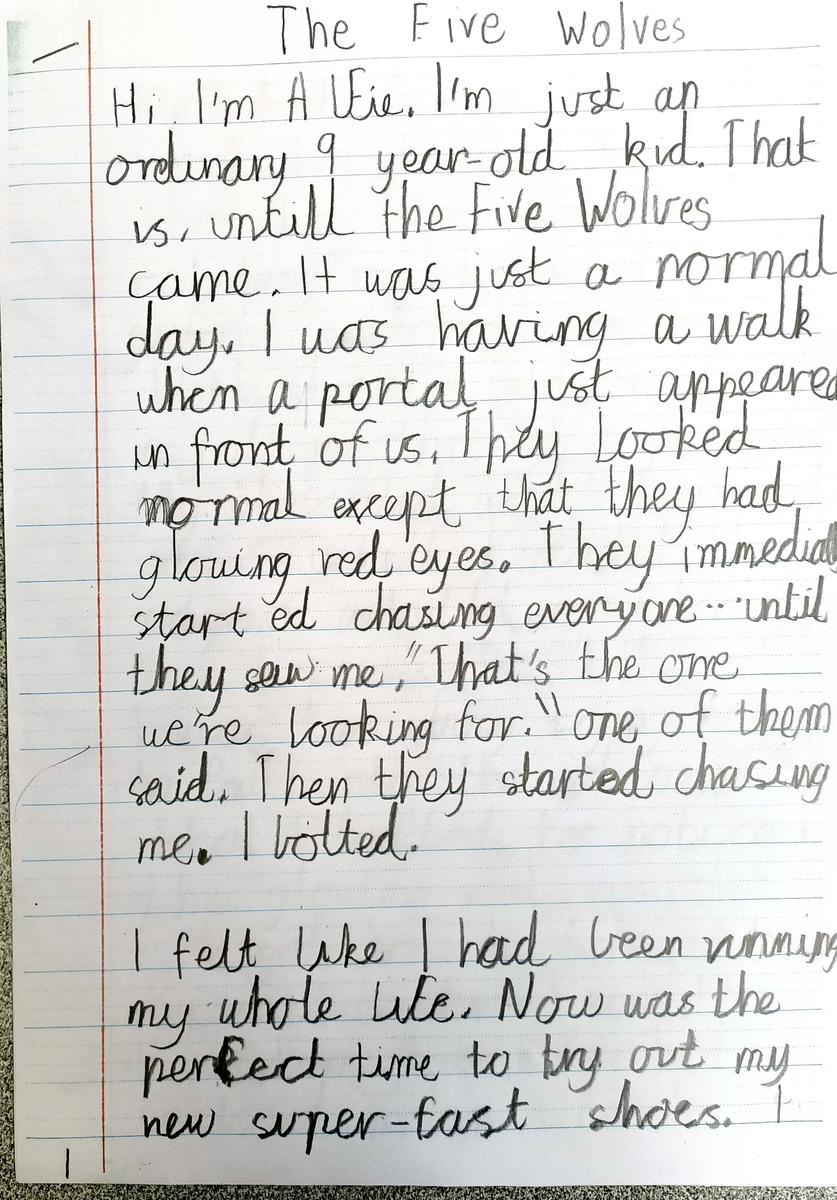 The Five Wolves
Hi I'm Alfie. I'm just an
ordinary 9 year-old kid. That
is, untill the Five Wolves
came. It was just a normal
day. I was having a walk
when a portal just appeared
in front of us. They looked
normal except that they had
glowing red eyes. They
started chasing everyone... until
they saw me, "That's the one
we're looking for." one of them
said. Then they started chasing
me. I bolted.
I felt like I had been running
my whole life. Now was the
perfect time to try out my
new super-fast shoes. I
1